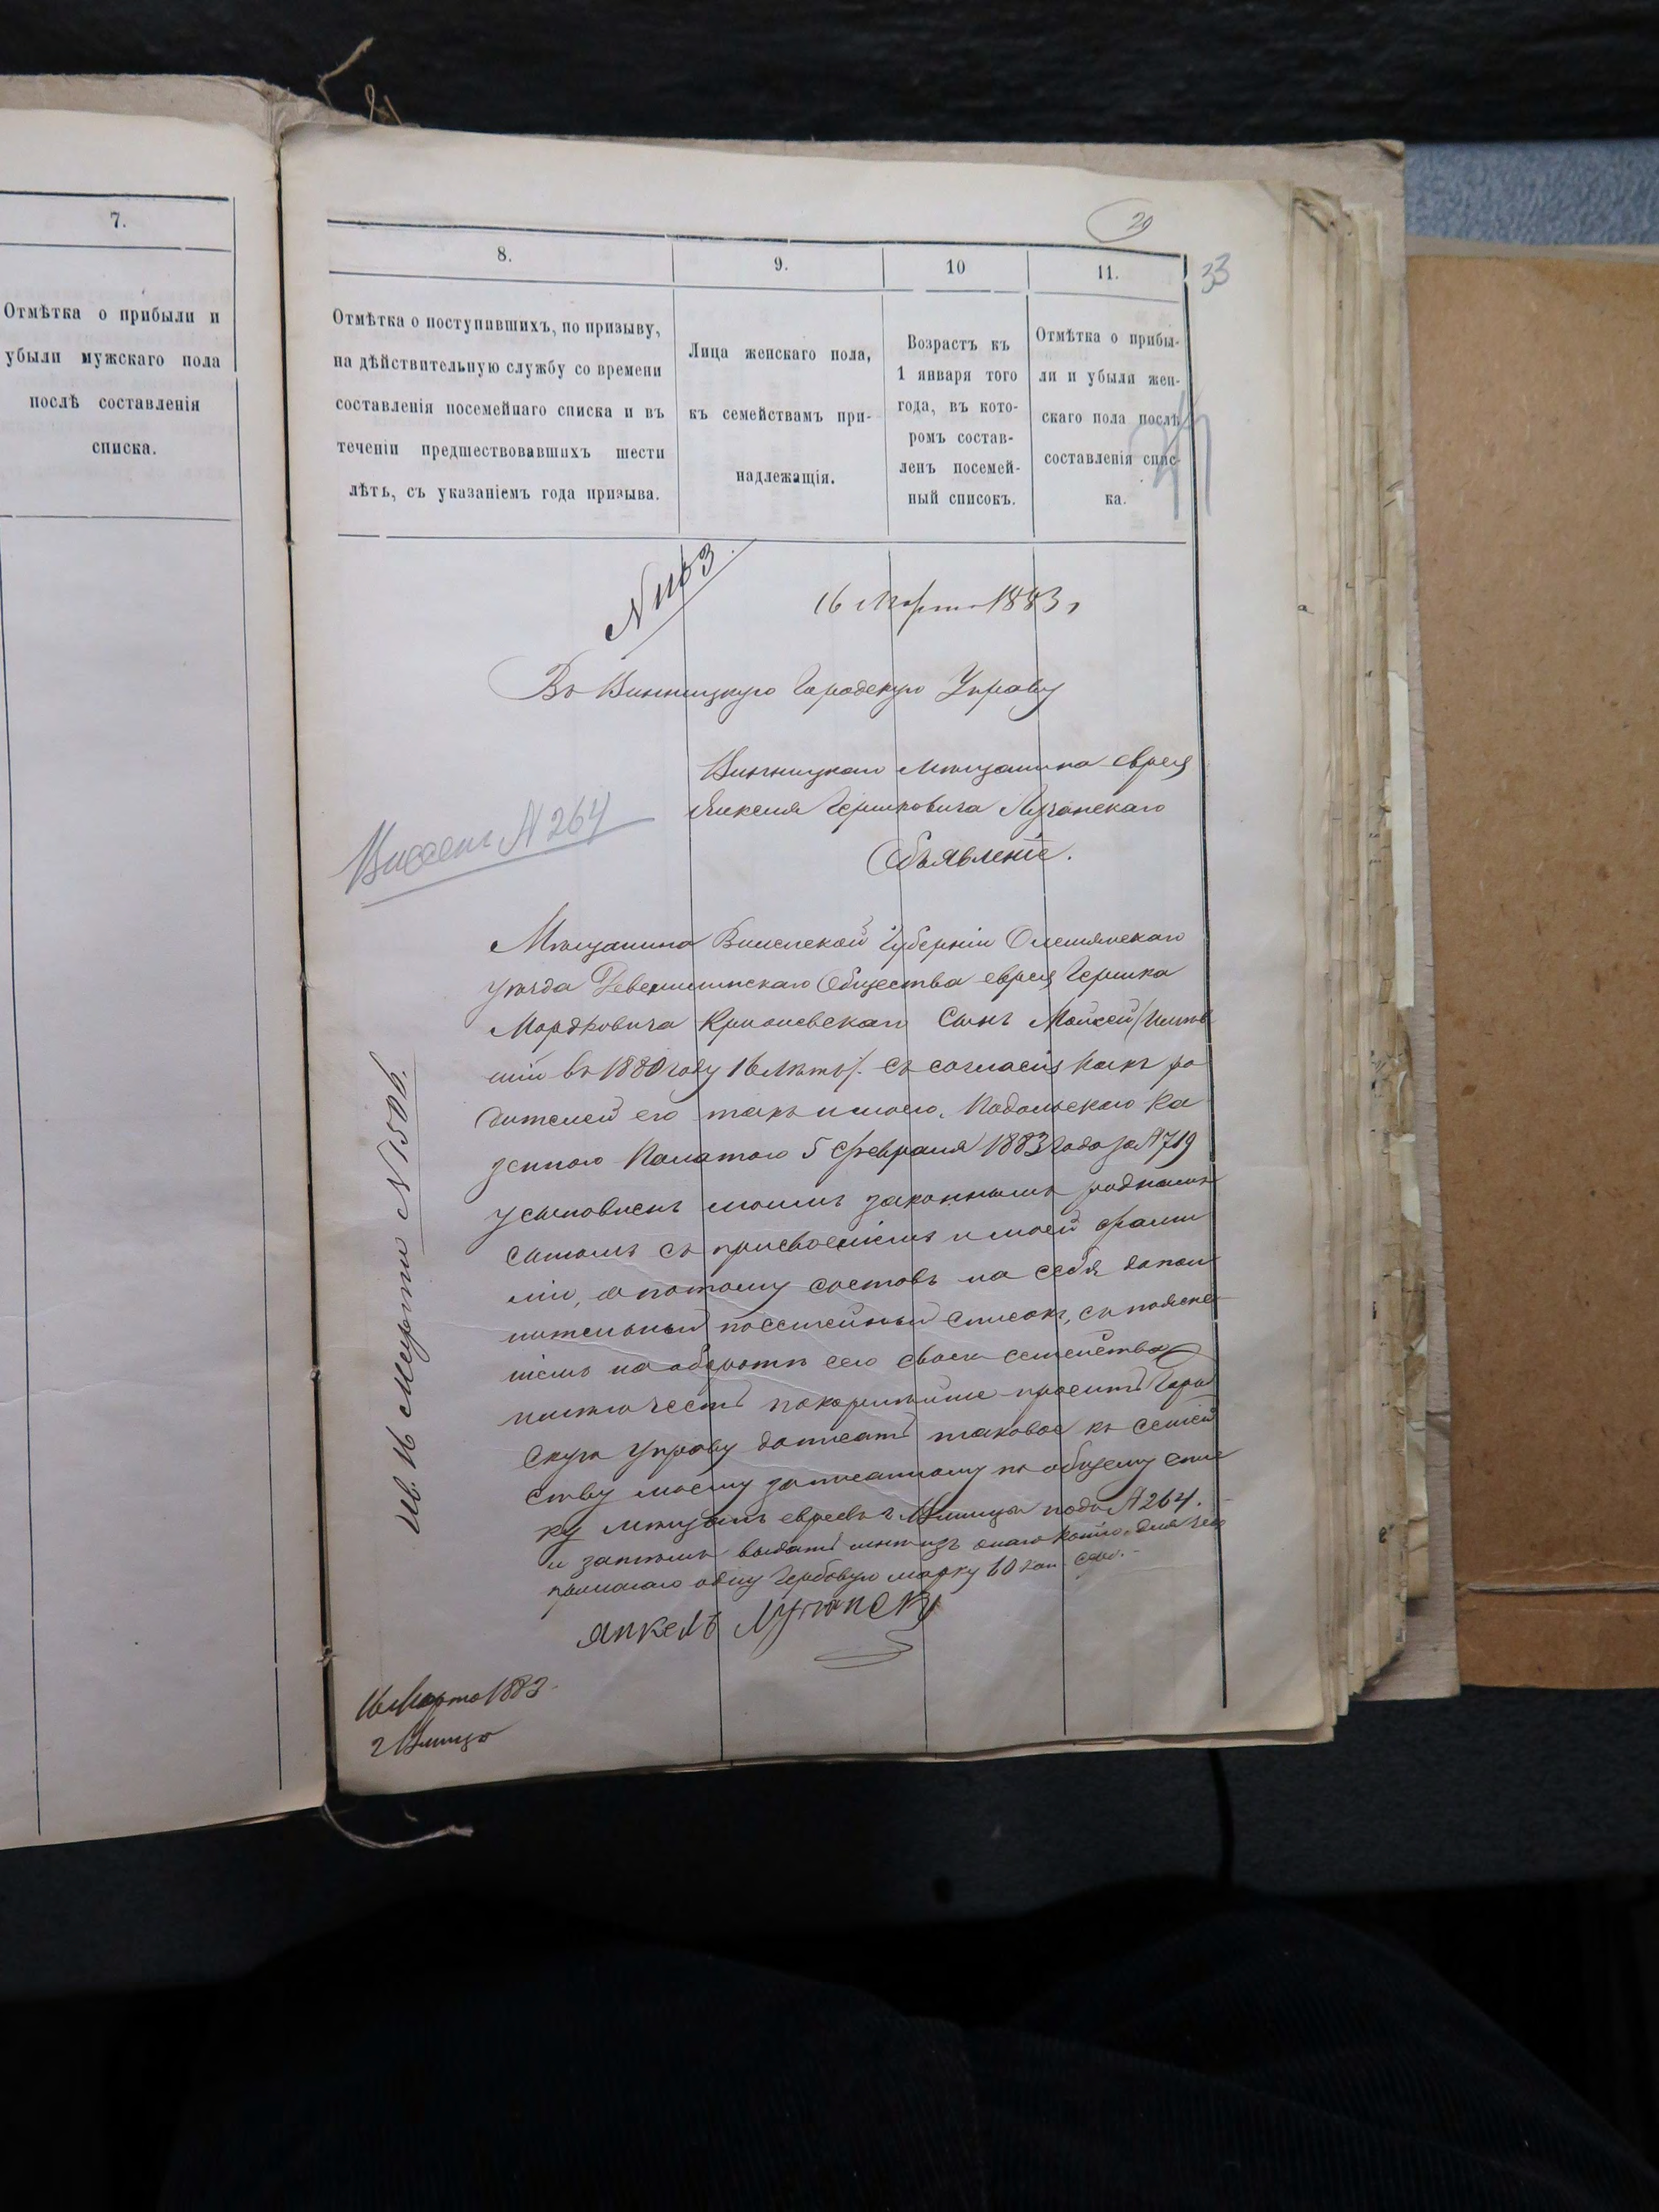 7.
Отмѣтка о прибыли и
убыли мужскаго пола
послѣ составленія
списка.
29
33
8.
Отмѣтка о поступившихъ, по призыву,
на дѣйствительную службу со времени
составленія посемейнаго списка и въ
теченіи предшествовавшихъ шести
лѣтъ, съ указаніемъ года призыва.
9.
Лица женскаго пола,
къ семействамъ при-
надлежащія.
10
Возрастъ къ
1 января того
года, въ кото-
ромъ состав-
ленъ посемей-
ный списокъ.
11.
Отмѣтка о прибы-
ли и убыли жен-
скаго пола послѣ
составленія спис-
ка.
N 1163
16 Марта 1883 г
Въ Винницкую Городскую Управу
Винницкаго мѣщанина еврея
Янкеля Гершковича Лучанскаго
Объявленіе.
Внесенъ N 264
Мѣщанина Виленской Губерніи Ошмянскаго
уѣзда Девенишскаго Общества еврея Гершка
Мордковича сынъ Мойсей /имѣв
шій въ 1880 году 16 лѣтъ/. съ согласія какъ ро
дителей его такъ и моего, Подольскою Ка
зенною Палатою 5 февраля 1883 года за N 719
усыновленъ моимъ законнымъ роднымъ
сыномъ съ присвоеніемъ и моей фами
ліи, а потому составъ на себя допол
нительный посемейный списокъ, съ поясне
ніемъ на оборотѣ сего своего семейства
имѣю честь покорнѣйше просить Горо
скую Управу дописать таковое къ семей
ству моему записанному по общему спис
ку мѣщанъ евреевъ г Винницы подъ N 264.
и затѣмъ выдать мнѣ изъ онаго копію, для чего
прилагаю одну Гербовую марку 60 коп сер.
Янкель Лучанскі
16 Марта 1883
г Винница
16 Марта N 1506.